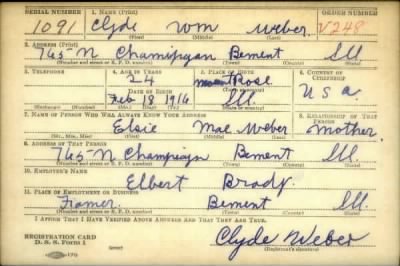 SERIAL NUMBER 1. NAME (Print) ORDER NUMBER
1091 Clyde Wm Weber V248
(First) (Middle) (Last)
2. ADDRESS (Print)
765-N Champaign Bement Ill
(Number and street or R. F. D. number) (Town) (County) (State)
3. TELEPHONE 4. AGE IN YEARS 5. PLACE OF BIRTH 6. COUNTRY OF CITIZENSHIP
24 Mount Rose
DATE OF BIRTH (Town or county)
Feb 18 1916 Ill U S a.
(Exchange) (Number) (Mo.) (Day) (Yr.) (State or country)
7. NAME OF PERSON WHO WILL ALWAYS KNOW YOUR ADDRESS 8. RELATIONSHIP OF THAT PERSON
Elsie Mae Weber Mother
(Mr., Mrs., Miss) (First) (Middle) (Last)
9. ADDRESS OF THAT PERSON
765-N Champaign Bement Ill.
(Number and street or R. F. D. number) (Town) (County) (State)
10. EMPLOYER'S NAME
Elbert Brady.
11. PLACE OF EMPLOYMENT OR BUSINESS
Framer. Bement Ill.
(Number and street or R. F. D. number) (Town) (County) (State)
I AFFIRM THAT I HAVE VERIFIED ABOVE ANSWERS AND THAT THEY ARE TRUE.
REGISTRATION CARD
D. S. S. Form 1 Clyde Weber
(Registrant's signature)